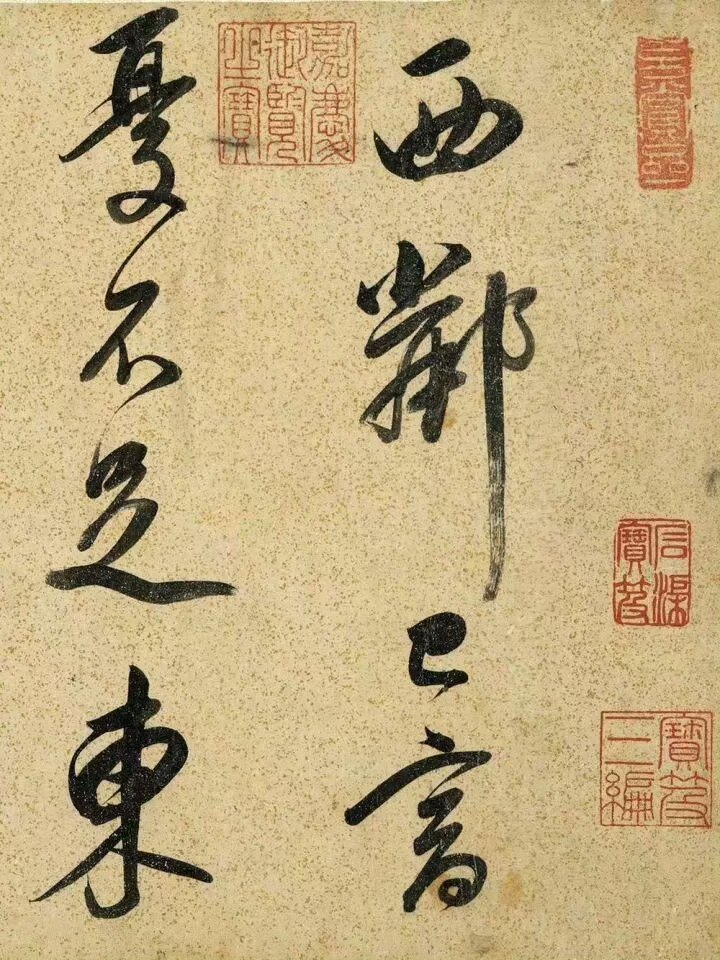 石渠
寶笈
寶笈
三編
西鄰已富
嘉慶
御覽
之寶
憂不足東